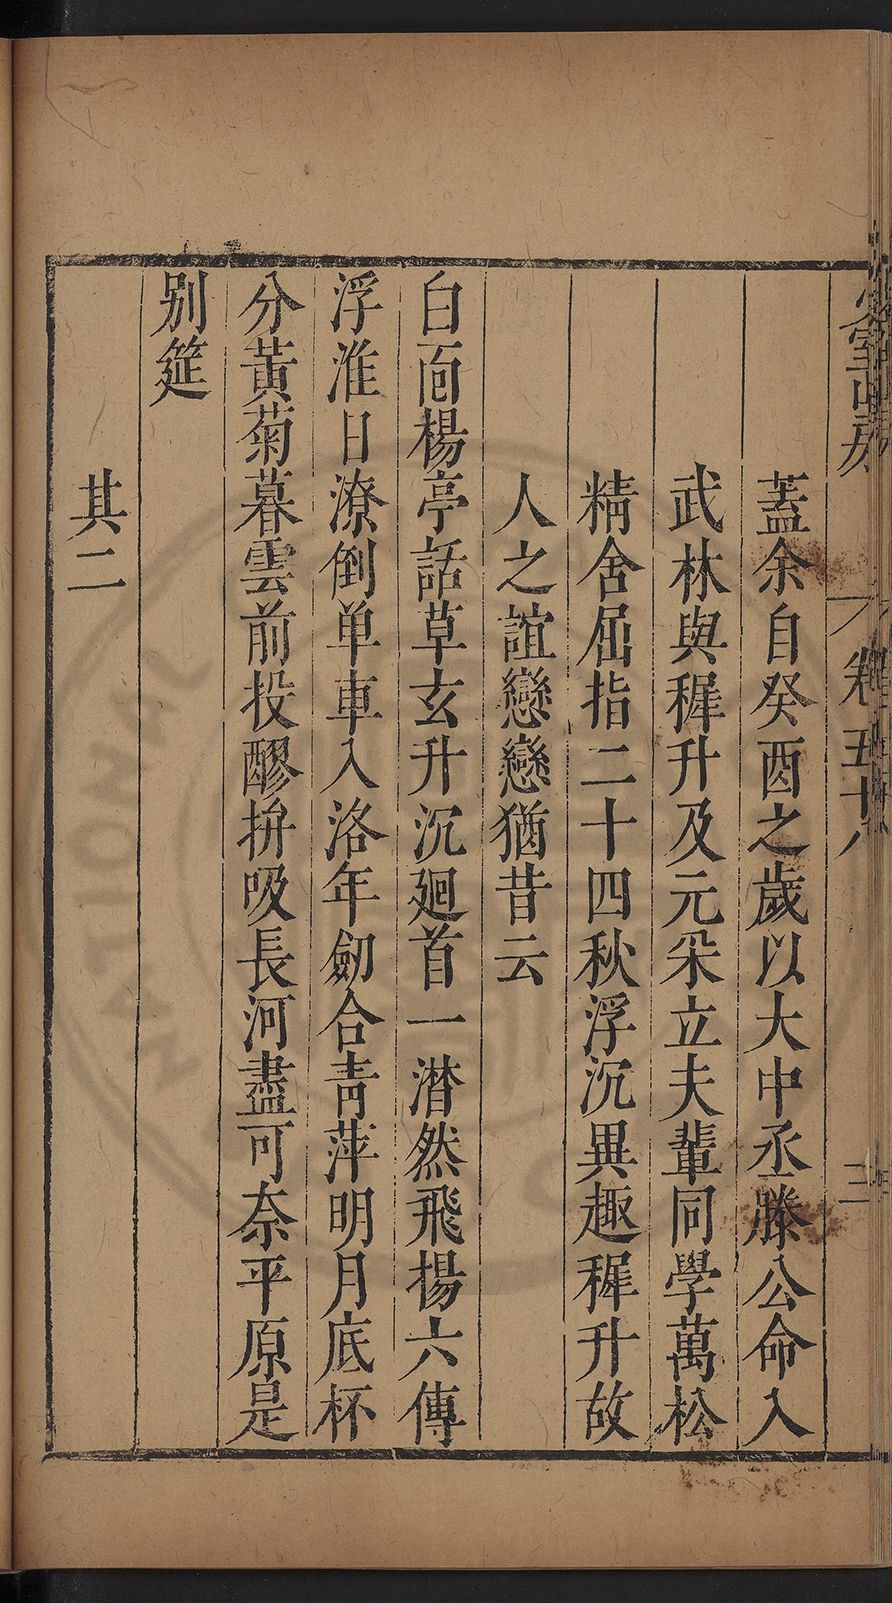 少室山房
卷五十八
三
蓋余自癸酉之歲以大中丞滕公命入
武林與穉升及元朶立夫輩同學萬松
精舍屈指二十四秋浮沉異趣穉升故
人之誼戀戀猶昔云
白面楊亭話草玄升沉廻首一潸然飛揚六傳
浮淮日潦倒单車入洛年劒合靑萍明月底杯
分黃菊暮雲前投醪拚吸長河盡可奈平原是
別筵
其二